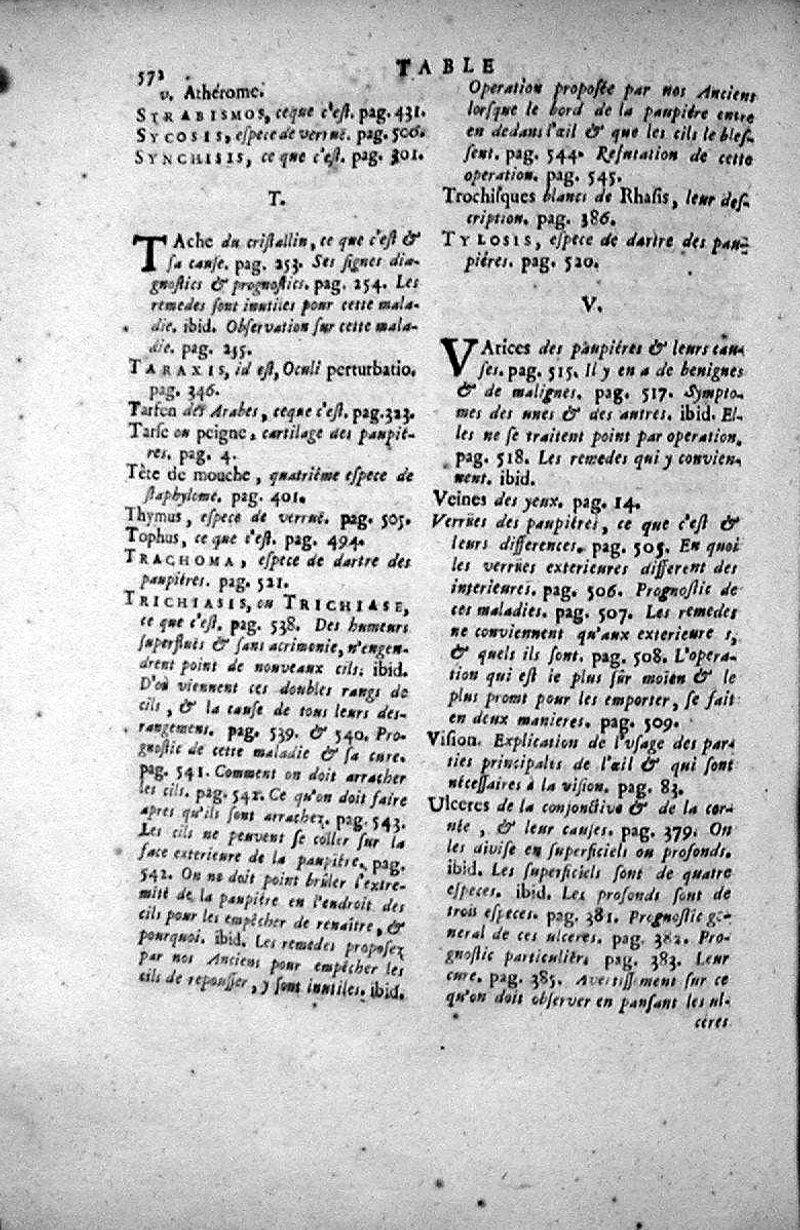 572
TABLE
v. Athérome.
STRABISMOS, ceque c'eſt. pag. 431.
SYCOSIS, eſpece de verruë. pag. 506.
SYNCHISIS, ce que c'eſt. pag. 301.
T.
TAche du criſtallin, ce que c'eſt &
ſa cauſe. pag. 253. Ses ſignes dia-
gnoſtics & prognoſtics. pag. 254. Les
remedes ſont inutiles pour cette mala-
die. ibid. Obſervation ſur cette mala-
die. pag. 255.
TARAXIS, id eſt, Oculi perturbatio.
pag. 346.
Tarfen des Arabes, ceque c'eſt. pag. 323.
Tarſe ou peigne, cartilage des paupié-
res. pag. 4.
Tête de mouche, quatriéme eſpece de
ſtaphylome. pag. 401.
Thymus, eſpece de verruë. pag. 505.
Tophus, ce que c'eſt. pag. 494.
TRACHOMA, eſpece de dartre des
paupiéres. pag. 521.
TRICHIASIS, ou TRICHIASE,
ce que c'eſt. pag. 538. Des humeurs
ſuperfluës & ſans acrimonie, n'engen-
drent point de nouveaux cils. ibid.
D'où viennent ces doubles rangs de
cils, & la cauſe de tous leurs des-
rangemens. pag. 539. & 540. Pro-
gnoſtic de cette maladie & ſa cure.
pag. 541. Comment on doit arracher
les cils. pag. 542. Ce qu'on doit faire
apres qu'ils ſont arrachez. pag. 543.
Les cils ne peuvent ſe coller ſur la
face exterieure de la paupiére. pag.
542. On ne doit point brûler l'extre-
mité de la paupiére en l'endroit des
cils pour les empêcher de renaître, &
pourquoi. ibid. Les remedes propoſez
par nos Anciens pour empêcher les
cils de repouſſer, y ſont inutiles. ibid.
Operation propoſée par nos Anciens
lorſque le bord de la paupiére entre
en dedans l'œil & que les cils le bleſ-
ſent. pag. 544. Refutation de cette
operation. pag. 545.
Trochiſques blancs de Rhaſis, leur deſ-
cription. pag. 386.
TYLOSIS, eſpece de dartre des pau-
piéres. pag. 520.
V.
VArices des paupiéres & leurs cau-
ſes. pag. 515. Il y en a de benignes
& de malignes. pag. 517. Sympto-
mes des unes & des autres. ibid. El-
les ne ſe traitent point par operation.
pag. 518. Les remedes qui y convien-
nent. ibid.
Veines des yeux. pag. 14.
Verruës des paupiéres, ce que c'eſt &
leurs differences. pag. 505. En quoi
les verruës exterieures different des
interieures. pag. 506. Prognoſtic de
ces maladies. pag. 507. Les remedes
ne conviennent qu'aux exterieure s,
& quels ils ſont. pag. 508. L'opera-
tion qui eſt le plus ſûr moien & le
plus promt pour les emporter, ſe fait
en deux manieres. pag. 509.
Viſion. Explication de l'uſage des par-
ties principales de l'œil & qui ſont
néceſſaires à la viſion. pag. 83.
Ulceres de la conjonctive & de la cor-
née, & leur cauſes. pag. 379. On
les diviſe en ſuperficiels ou profonds.
ibid. Les ſuperficiels ſont de quatre
eſpeces. ibid. Les profonds ſont de
trois eſpeces. pag. 381. Prognoſtic ge-
neral de ces ulceres. pag. 382. Pro-
gnoſtic particulier. pag. 383. Leur
cure. pag. 385. Avertiſſement ſur ce
qu'on doit obſerver en panſant les ul-
ceres